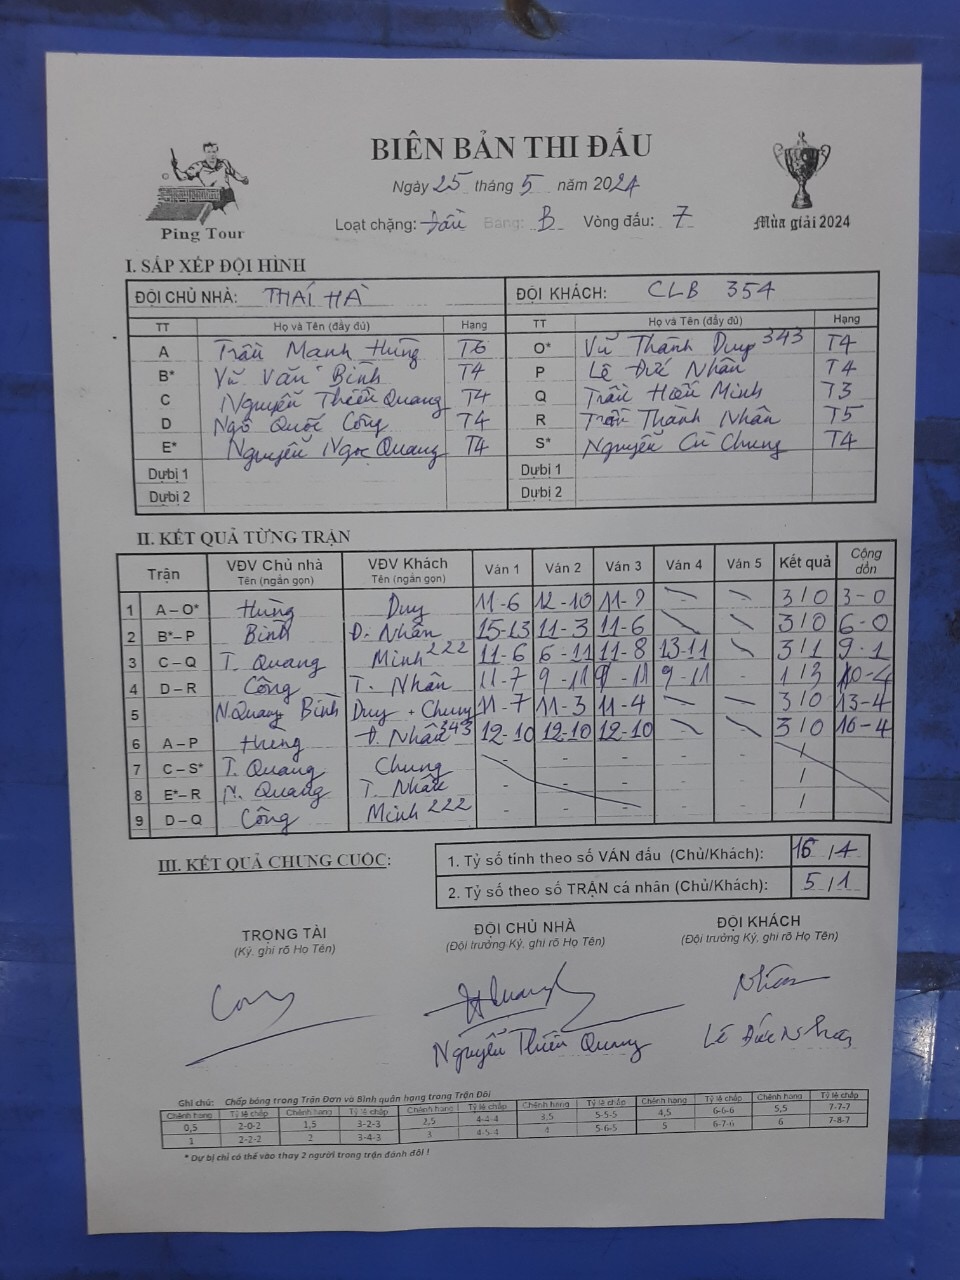 BIÊN BẢN THI ĐẤU
Ngày 25 tháng 5 năm 2024
Loạt chặng: Đầu Bảng: B Vòng đấu: 7
Ping Tour
Mùa giải 2024
I. SẮP XẾP ĐỘI HÌNH
ĐỘI CHỦ NHÀ: THÁI HÀ ĐỘI KHÁCH: CLB 354
TT Họ và Tên (đầy đủ) Hạng TT Họ và Tên (đầy đủ) Hạng
A Trần Mạnh Hùng T6 O* Vũ Thành Duy 343 T4
B* Vũ Văn Bình T4 P Lê Đức Nhân T4
C Nguyễn Thiều Quang T4 Q Trần Hữu Minh T3
D Ngô Quốc Công T4 R Trần Thành Nhân T5
E* Nguyễn Ngọc Quang T4 S* Nguyễn Cử Chung T4
Dự bị 1 Dự bị 1
Dự bị 2 Dự bị 2
II. KẾT QUẢ TỪNG TRẬN
Trận VĐV Chủ nhà Tên (ngắn gọn) VĐV Khách Tên (ngắn gọn) Ván 1 Ván 2 Ván 3 Ván 4 Ván 5 Kết quả Cộng dồn
1 A – O* Hùng Duy 11-6 12-10 11-9 3/0 3-0
2 B* – P Bình Đ. Nhân 15-13 11-3 11-6 3/0 6-0
3 C – Q T. Quang Minh 222 11-6 6-11 11-8 13-11 3/1 9-1
4 D – R Công T. Nhân 11-7 9-11 9-11 9-11 - 1/3 10-4
5 N.Quang Bình Duy + Chung 11-7 11-3 11-4 3/0 13-4
6 A – P Hùng Đ. Nhân 343 12-10 12-10 12-10 3/0 16-4
7 C – S* T. Quang Chung - - - - - /
8 E* – R N. Quang T. Nhân - - - - - /
9 D – Q Công Minh 222 - - - - - /
III. KẾT QUẢ CHUNG CUỘC:
1. Tỷ số tính theo số VÁN đấu (Chủ/Khách): 16/4
2. Tỷ số theo số TRẬN cá nhân (Chủ/Khách): 5/1
TRỌNG TÀI ĐỘI CHỦ NHÀ ĐỘI KHÁCH
(Ký, ghi rõ Họ Tên) (Đội trưởng Ký, ghi rõ Họ Tên) (Đội trưởng Ký, ghi rõ Họ Tên)
Công Quang Nhân
Nguyễn Thiều Quang Lê Đức Nhân
Ghi chú: Chấp bóng trong Trận Đơn và Bình quân hạng trong Trận Đôi
Chênh hạng Tỷ lệ chấp Chênh hạng Tỷ lệ chấp Chênh hạng Tỷ lệ chấp Chênh hạng Tỷ lệ chấp Chênh hạng Tỷ lệ chấp Chênh hạng Tỷ lệ chấp
0,5 2-0-2 1,5 3-2-3 2,5 4-4-4 3,5 5-5-5 4,5 6-6-6 5,5 7-7-7
1 2-2-2 2 3-4-3 3 4-5-4 4 5-6-5 5 6-7-6 6 7-8-7
* Dự bị chỉ có thể vào thay 2 người trong trận đánh đôi !